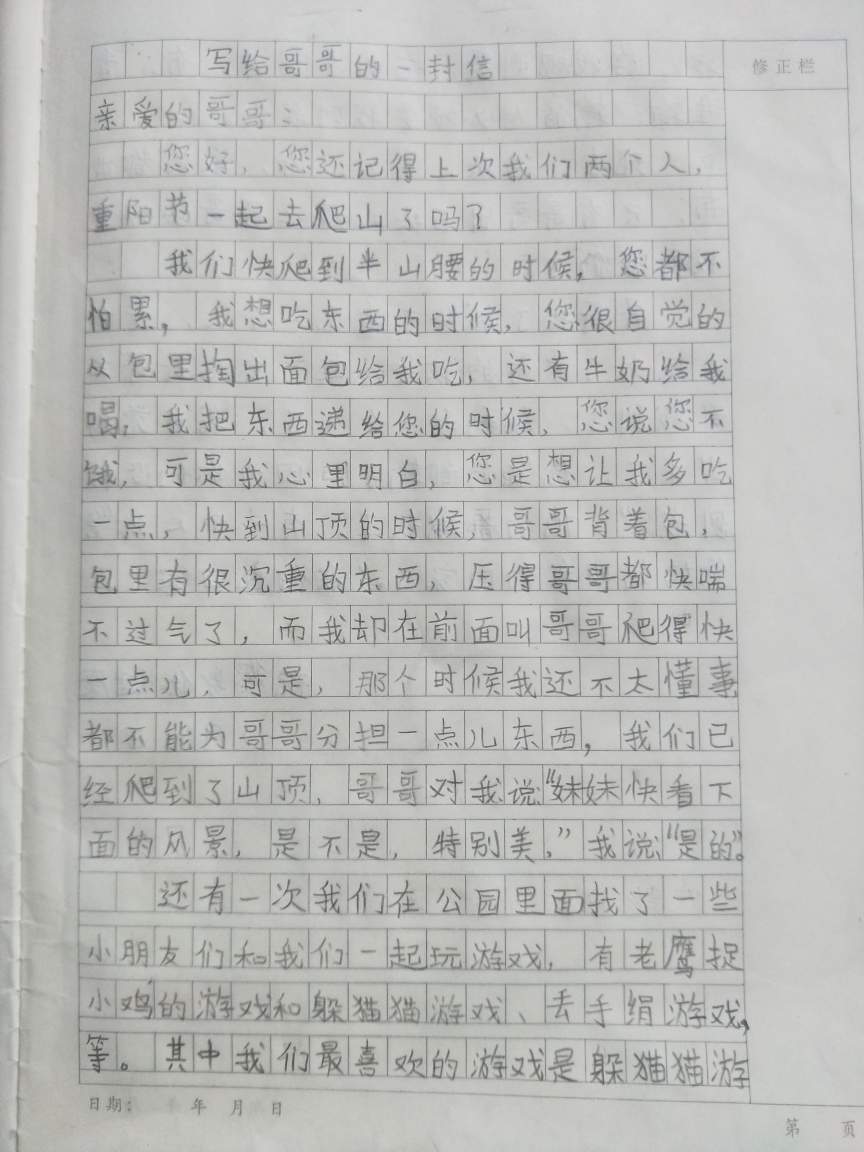 写给哥哥的一封信
修正栏
亲爱的哥哥：
您好，您还记得上次我们两个人，
重阳节一起去爬山了吗？
我们快爬到半山腰的时候，您都不
怕累，我想吃东西的时候，您很自觉的
从包里掏出面包给我吃，还有牛奶给我
喝，我把东西递给您的时候，您说您不
饿，可是我心里明白，您是想让我多吃
一点，快到山顶的时候，哥哥背着包，
包里有很沉重的东西，压得哥哥都快喘
不过气了，而我却在前面叫哥哥爬得快
一点儿，可是，那个时候我还不太懂事
都不能为哥哥分担一点儿东西，我们已
经爬到了山顶，哥哥对我说“妹妹快看下
面的风景，是不是，特别美，”我说“是的”。
还有一次我们在公园里面找了一些
小朋友们和我们一起玩游戏，有老鹰捉
小鸡的游戏和躲猫猫游戏、丢手绢游戏，
等。其中我们最喜欢的游戏是躲猫猫游
日期： 年 月 日
第 页